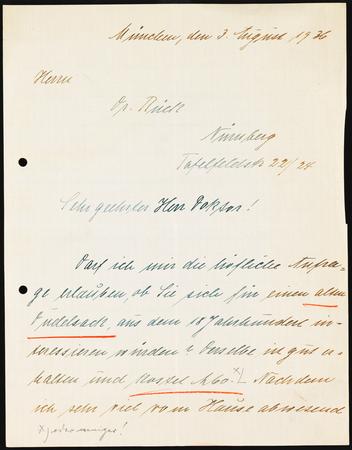 München, den 3. August 1936
Herrn
Dr. Rück
Nürnberg
Tafelfeldstr. 22/24
Sehr geehrter Herr Doktor!
Darf ich mir die höfliche Anfra-
ge erlauben, ob Sie sich für einen alten
Dudelsack, aus dem 18 Jahrhundert in-
teressieren würden? Derselbe ist gut er-
halten und kostet M 60.- x) Nachdem
ich sehr viel vom Hause abwesend
x) oder weniger!